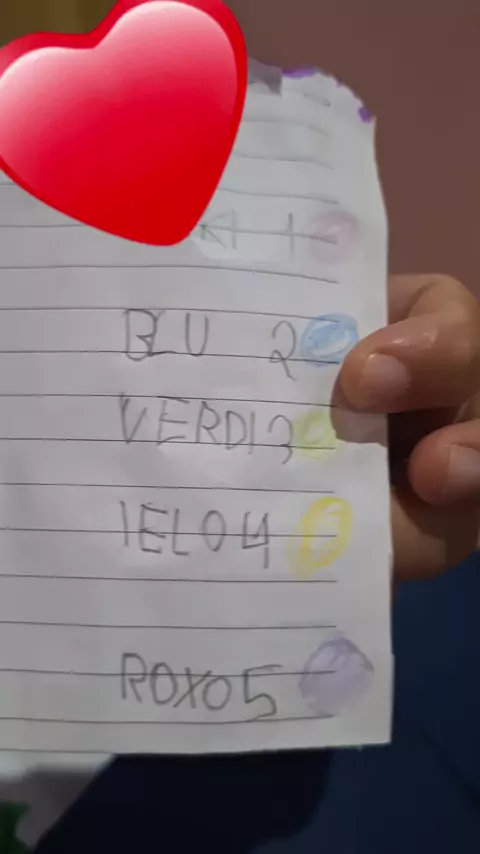 1
BLU 2
VERDI 3
IELO 4
ROXO 5